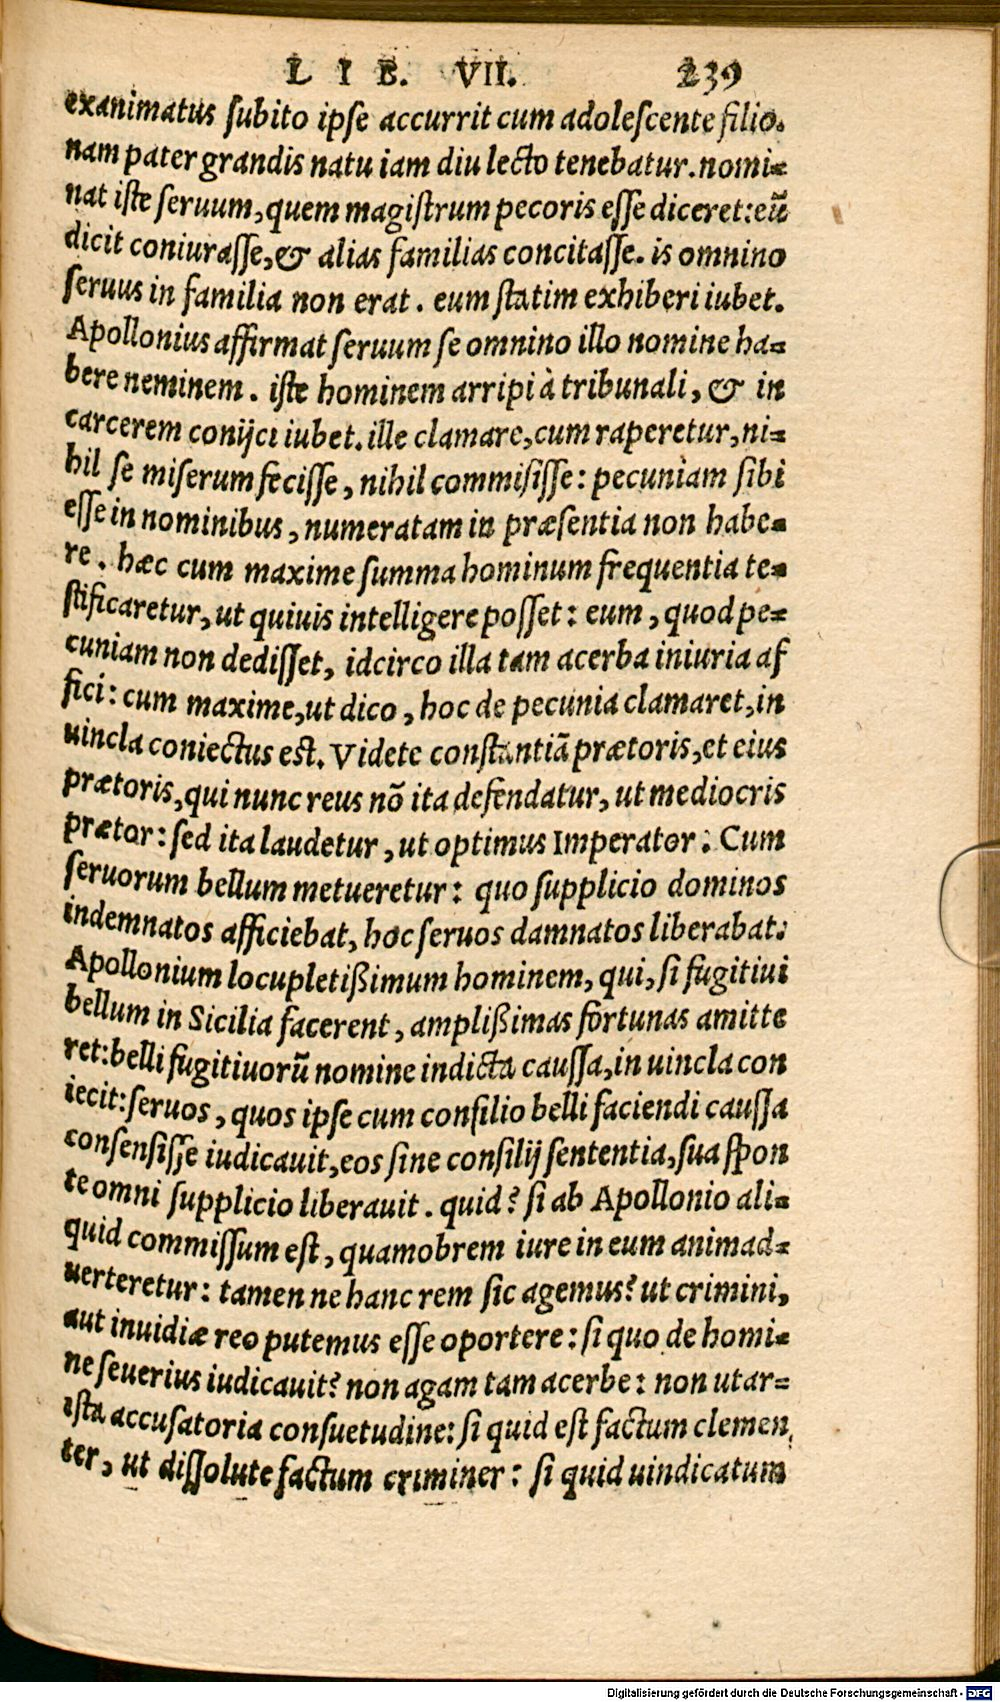 LIB. VII. 239
exanimatus ſubito ipſe accurrit cum adoleſcente filio.
nam pater grandis natu iam diu lecto tenebatur. nomi-
nat iſte ſeruum, quem magiſtrum pecoris eſſe diceret: eũ
dicit coniuraſſe, & alias familias concitaſſe. is omnino
ſeruus in familia non erat. eum ſtatim exhiberi iubet.
Apollonius affirmat ſeruum ſe omnino illo nomine ha-
bere neminem. iſte hominem arripi à tribunali, & in
carcerem conijci iubet. ille clamare, cum raperetur, ni-
hil ſe miſerum feciſſe, nihil commiſiſſe: pecuniam ſibi
eſſe in nominibus, numeratam in præſentia non habe-
re. hæc cum maxime ſumma hominum frequentia te-
ſtificaretur, ut quiuis intelligere poſſet: eum, quod pe-
cuniam non dediſſet, idcirco illa tam acerba iniuria af
fici: cum maxime, ut dico, hoc de pecunia clamaret, in
uincla coniectus eſt. Videte conſtantiã prætoris, et eius
prætoris, qui nunc reus nõ ita defendatur, ut mediocris
prætor: ſed ita laudetur, ut optimus Imperator: Cum
ſeruorum bellum metueretur: quo ſupplicio dominos
indemnatos afficiebat, hoc ſeruos damnatos liberabat:
Apollonium locupletißimum hominem, qui, ſi fugitiui
bellum in Sicilia facerent, amplißimas fortunas amitte
ret: belli fugitiuorũ nomine indicta cauſſa, in uincla con
iecit: ſeruos, quos ipſe cum conſilio belli faciendi cauſſa
conſenſiſſe iudicauit, eos ſine conſilij ſententia, ſua ſpon
te omni ſupplicio liberauit. quid? ſi ab Apollonio ali-
quid commiſſum eſt, quamobrem iure in eum animad-
uerteretur: tamen ne hanc rem ſic agemus? ut crimini,
aut inuidiæ reo putemus eſſe oportere: ſi quo de homi-
ne ſeuerius iudicauit? non agam tam acerbe: non utar-
iſta accuſatoria conſuetudine: ſi quid eſt factum clemen
ter, ut diſſolute factum criminer: ſi quid uindicatum
Digitalisierung gefördert durch die Deutsche Forschungsgemeinschaft - DFG